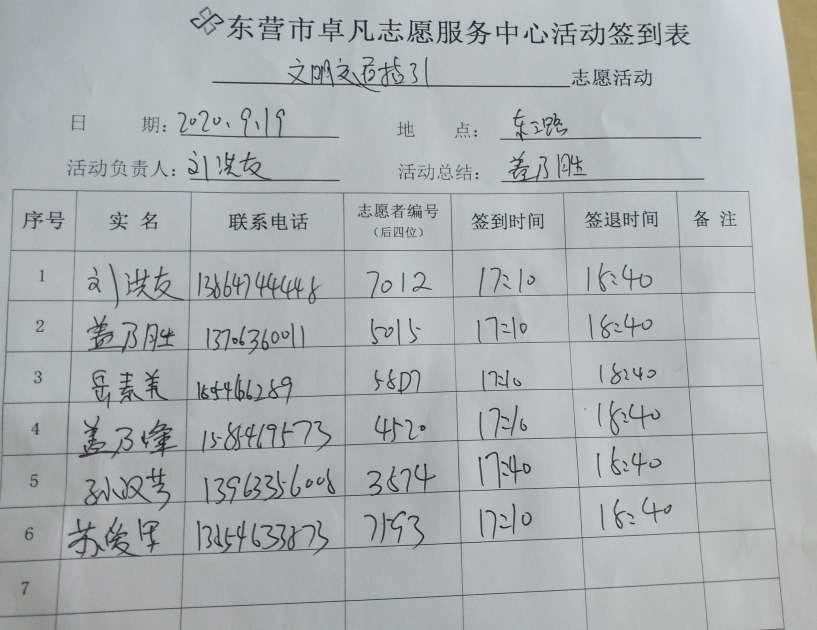 东营市卓凡志愿服务中心活动签到表
文明交通指引 志愿活动
日 期：2020.9.19 地 点：东三路
活动负责人：刘洪友 活动总结：盖乃胜
序号 实名 联系电话 志愿者编号（后四位） 签到时间 签退时间 备注
1 刘洪友 13864744448 7012 17:10 18:40
2 盖乃胜 13706360011 5015 17:10 18:40
3 岳素美 5807 17:10 18:40
4 盖乃峰 15854619573 4520 17:10 18:40
5 孙汉芳 13963356008 3874 17:40 18:40
6 苏俊军 13854633873 7193 17:10 18:40
7